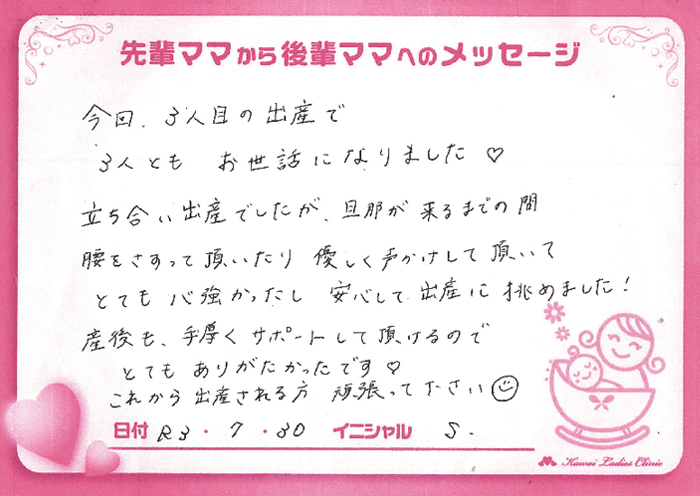 先輩ママから後輩ママへのメッセージ
今回、3人目の出産で
3人とも お世話になりました♡
立ち合い出産でしたが、旦那が来るまでの間
腰をさすって頂いたり 優しく声かけして頂いて
とても心強かったし 安心して出産に挑めました！
産後も、手厚くサポートして頂けるので
とてもありがたかったです♡
これから出産される方 頑張って下さい☺
日付 R3・7・30 イニシャル S.
Kawai Ladies Clinic